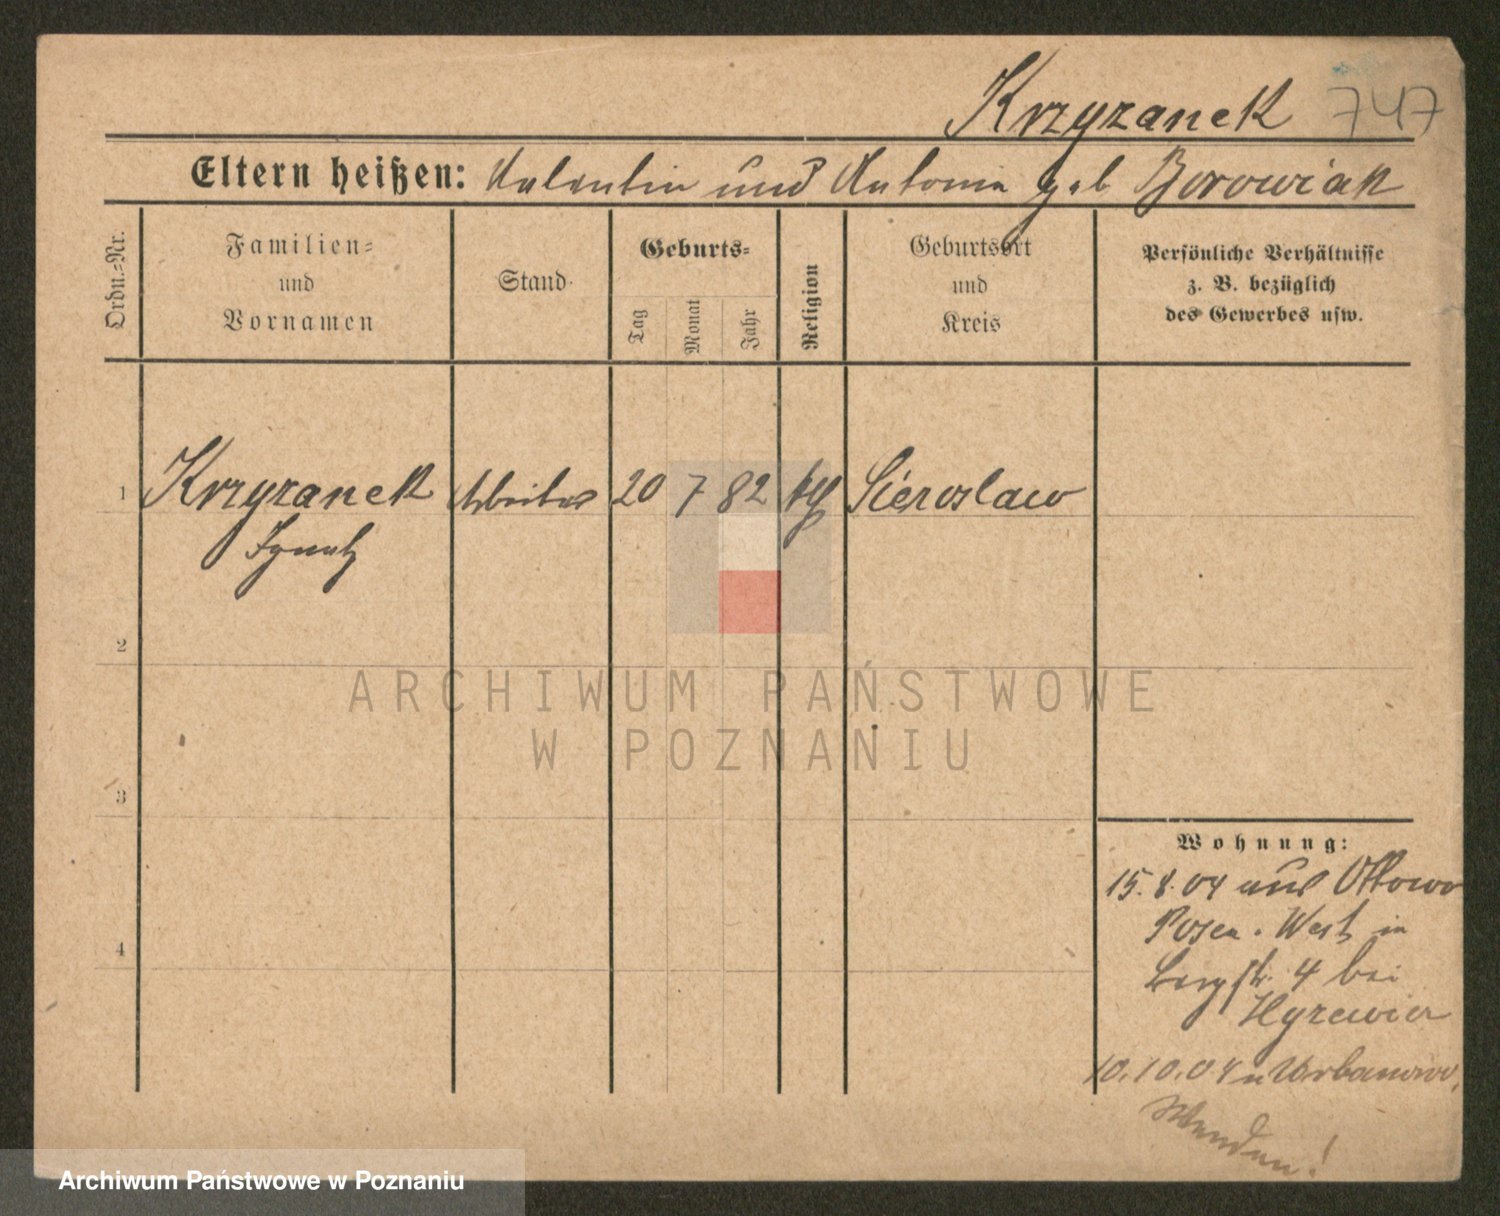 Krzyzanek 747
Eltern heißen: Valentin und Antonia geb Borowiak
Ordn.-Nr.
Familien-
und
Vornamen
Stand
Geburts-
Tag
Monat
Jahr
Religion
Geburtsort
und
Kreis
Persönliche Verhältnisse
z. B. bezüglich
des Gewerbes usw.
1 Krzyzanek Arbeiter 20 7 82 kth Sieroslaw
Ignatz
2
3
4
Wohnung:
15.8.04 aus Ottowo
Posen. West in
Bergstr. 4 bei
10.10.04 n Urbanowo.
Wenden!
ARCHIWUM PAŃSTWOWE
W POZNANIU
Archiwum Państwowe w Poznaniu